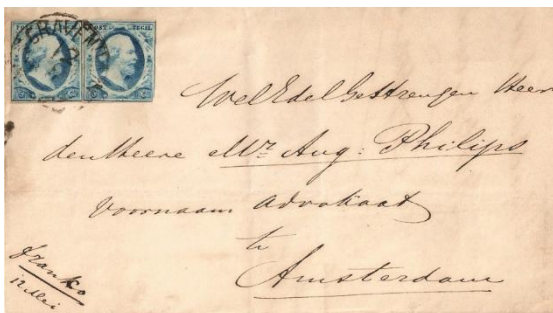 POST ZEGEL POST ZEGEL
WelEdelGestrengen Heer
den Heere Mr. Aug: Philips
Voornaam Advokaat
te
Amsterdam
franko
12 Mei